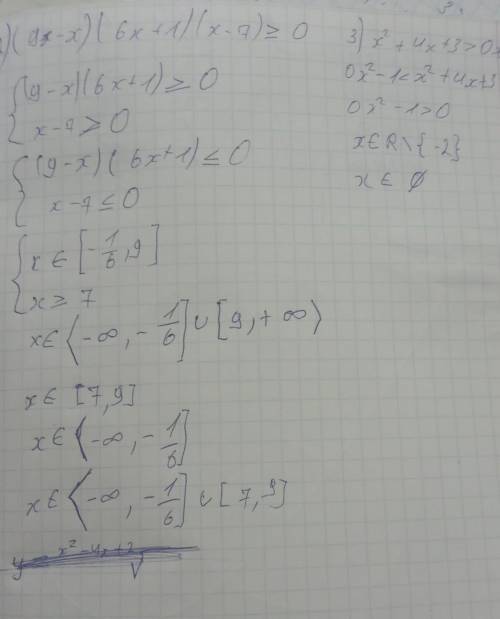 )(9x-x)(6x+1)(x-7)≥0
{(9-x)(6x+1)≥0
x-7≥0
{(9-x)(6x+1)≤0
x-7≤0
{x∈[-1/6,9]
x≥7
x∈⟨-∞,-1/6]∪[9,+∞⟩
x∈[7,9]
x∈⟨-∞,-1/6]
x∈⟨-∞,-1/6]∪[7,9]
3) x²+4x+3>0
0x²-1<x²+4x+3
0x²-1>0
x∈R\{-2}
x∈∅